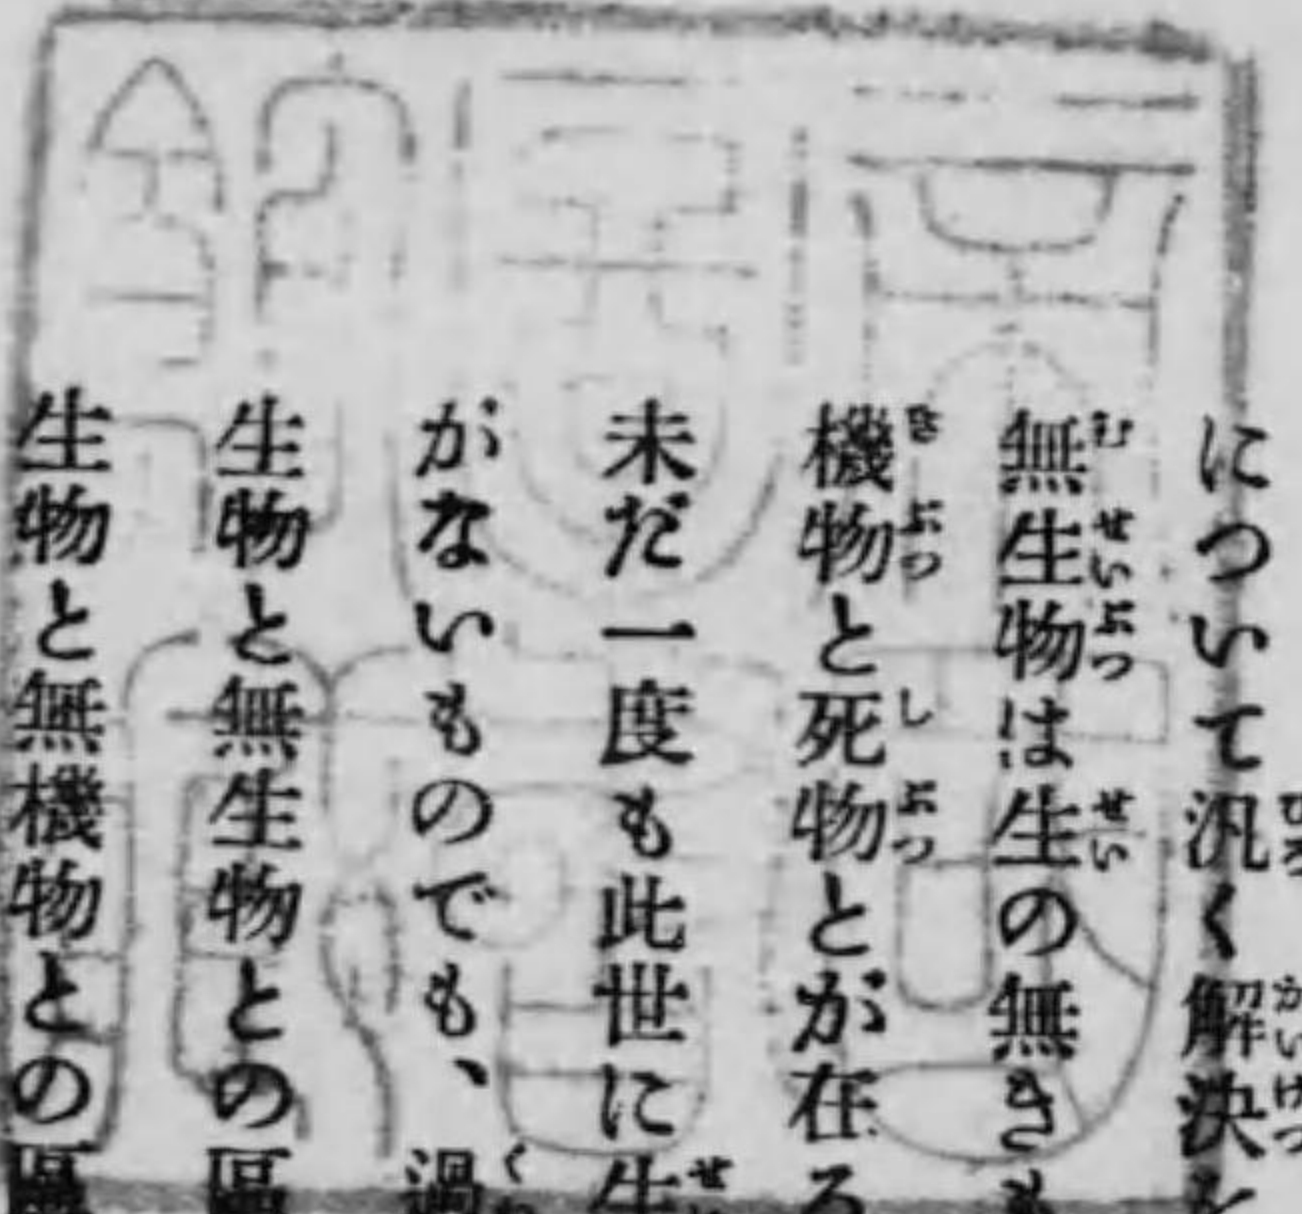 について汎く解決
無生物は生の無き
機物と死物とが在る
未だ一度も此世に生
がないものでも、過
生物と無生物との區
生物と無機物との區